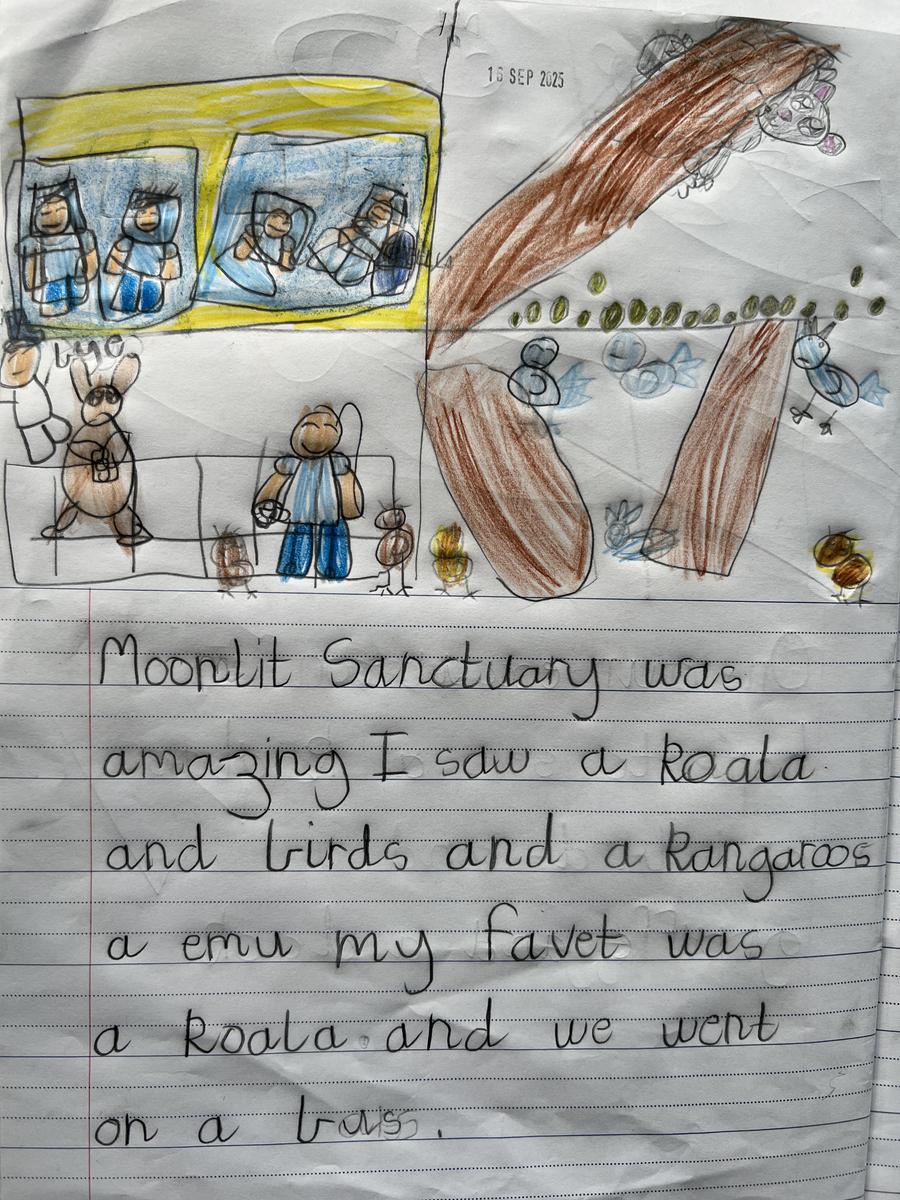 16 SEP 2025
bye
Moonlit Sanctuary was
amazing I saw a koala
and birds and a kangaroos
a emu my favet was
a koala. and we went
on a bus.